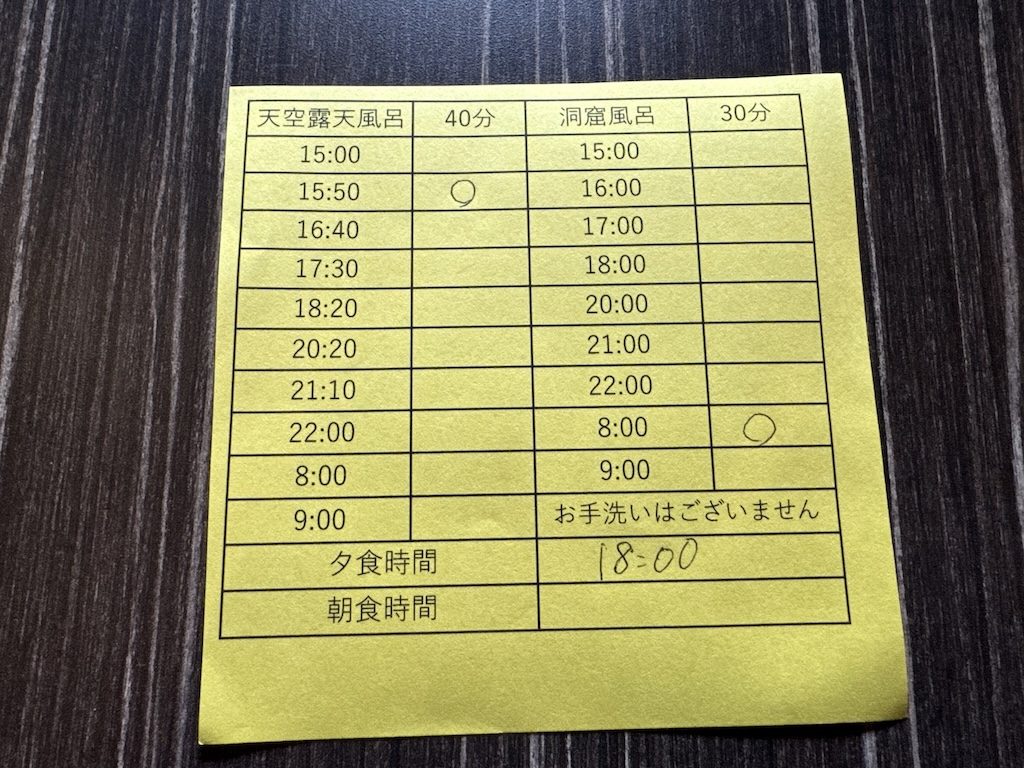 天空露天風呂 40分 洞窟風呂 30分
15:00 15:00
15:50 ○ 16:00
16:40 17:00
17:30 18:00
18:20 20:00
20:20 21:00
21:10 22:00
22:00 8:00 ○
8:00 9:00
9:00 お手洗いはございません
夕食時間 18:00
朝食時間